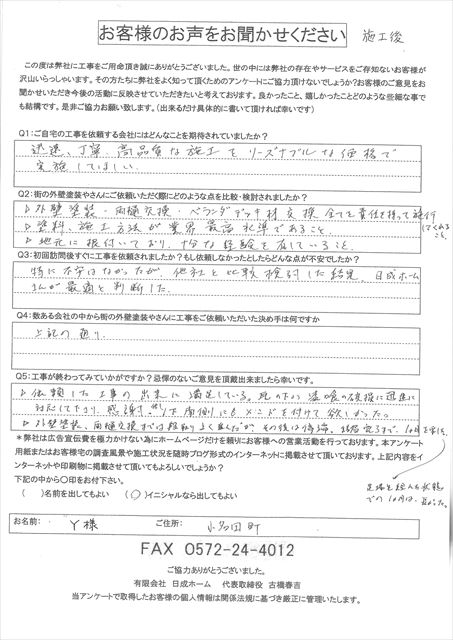 お客様のお声をお聞かせください
施工後
この度は弊社に工事をご用命頂き誠にありがとうございました。世の中には弊社の存在やサービスをご存知ないお客様が
沢山いらっしゃいます。その方たちに弊社をよく知って頂くためのアンケートにご協力頂けないでしょうか?お客様のご意見をお
聞かせいただき今後の活動に反映させていただきたいと考えております。良かったこと、嬉しかったことどのような些細な事で
も結構です。是非ご協力お願い致します。(出来るだけ具体的に書いて頂ければ幸いです)
Q1:ご自宅の工事を依頼する会社にはどんなことを期待されていましたか?
迅速、丁寧、高品質な施工をリーズナブルな価格で
実施してほしい。
Q2:街の外壁塗装やさんにご依頼いただく際にどのような点を比較・検討されましたか?
外壁塗装・雨樋交換・ベランダデッキ材交換全てを責任を持って施行
してくれること。
塗料、施工方法が業界最高水準であること。
地元に根付いており、十分な経験を有していること。
Q3:初回訪問後すぐに工事を依頼されましたか?もし依頼しなかったとしたらどんな点が不安でしたか?
特に不安はなかったが、他社と比較検討した結果、日成ホーム
さんが最適と判断した。
Q4:数ある会社の中から街の外壁塗装やさんに工事をご依頼いただいた決め手は何ですか
上記の通り
Q5:工事が終わってみていかがですか?忌憚のないご意見を頂戴出来ましたら幸いです。
依頼した工事の出来に満足している。
対応して下さり、感謝。
外壁塗装、雨樋交換までは段取りよく進んだが、その後は
*弊社は広告宣伝費を極力かけない為にホームページだけを頼りにお客様への営業活動を行っております。本アンケート
用紙またはお客様宅の調査風景や施工状況を随時ブログ形式のインターネットに掲載させて頂いております。上記内容をイ
ンターネットや印刷物に掲載させて頂いてもよろしいでしょうか?
足場を組んだ状態
での10月は、長かった。
下記の中から○印をお付下さい。
( )名前を出してもよい (○)イニシャルなら出してもよい
お名前: Y様 ご住所: 小名田町
FAX 0572-24-4012
ご協力ありがとうございました。
有限会社 日成ホーム 代表取締役 古橋春吉
当アンケートで取得したお客様の個人情報は関係法規に基づき厳正に管理いたします。